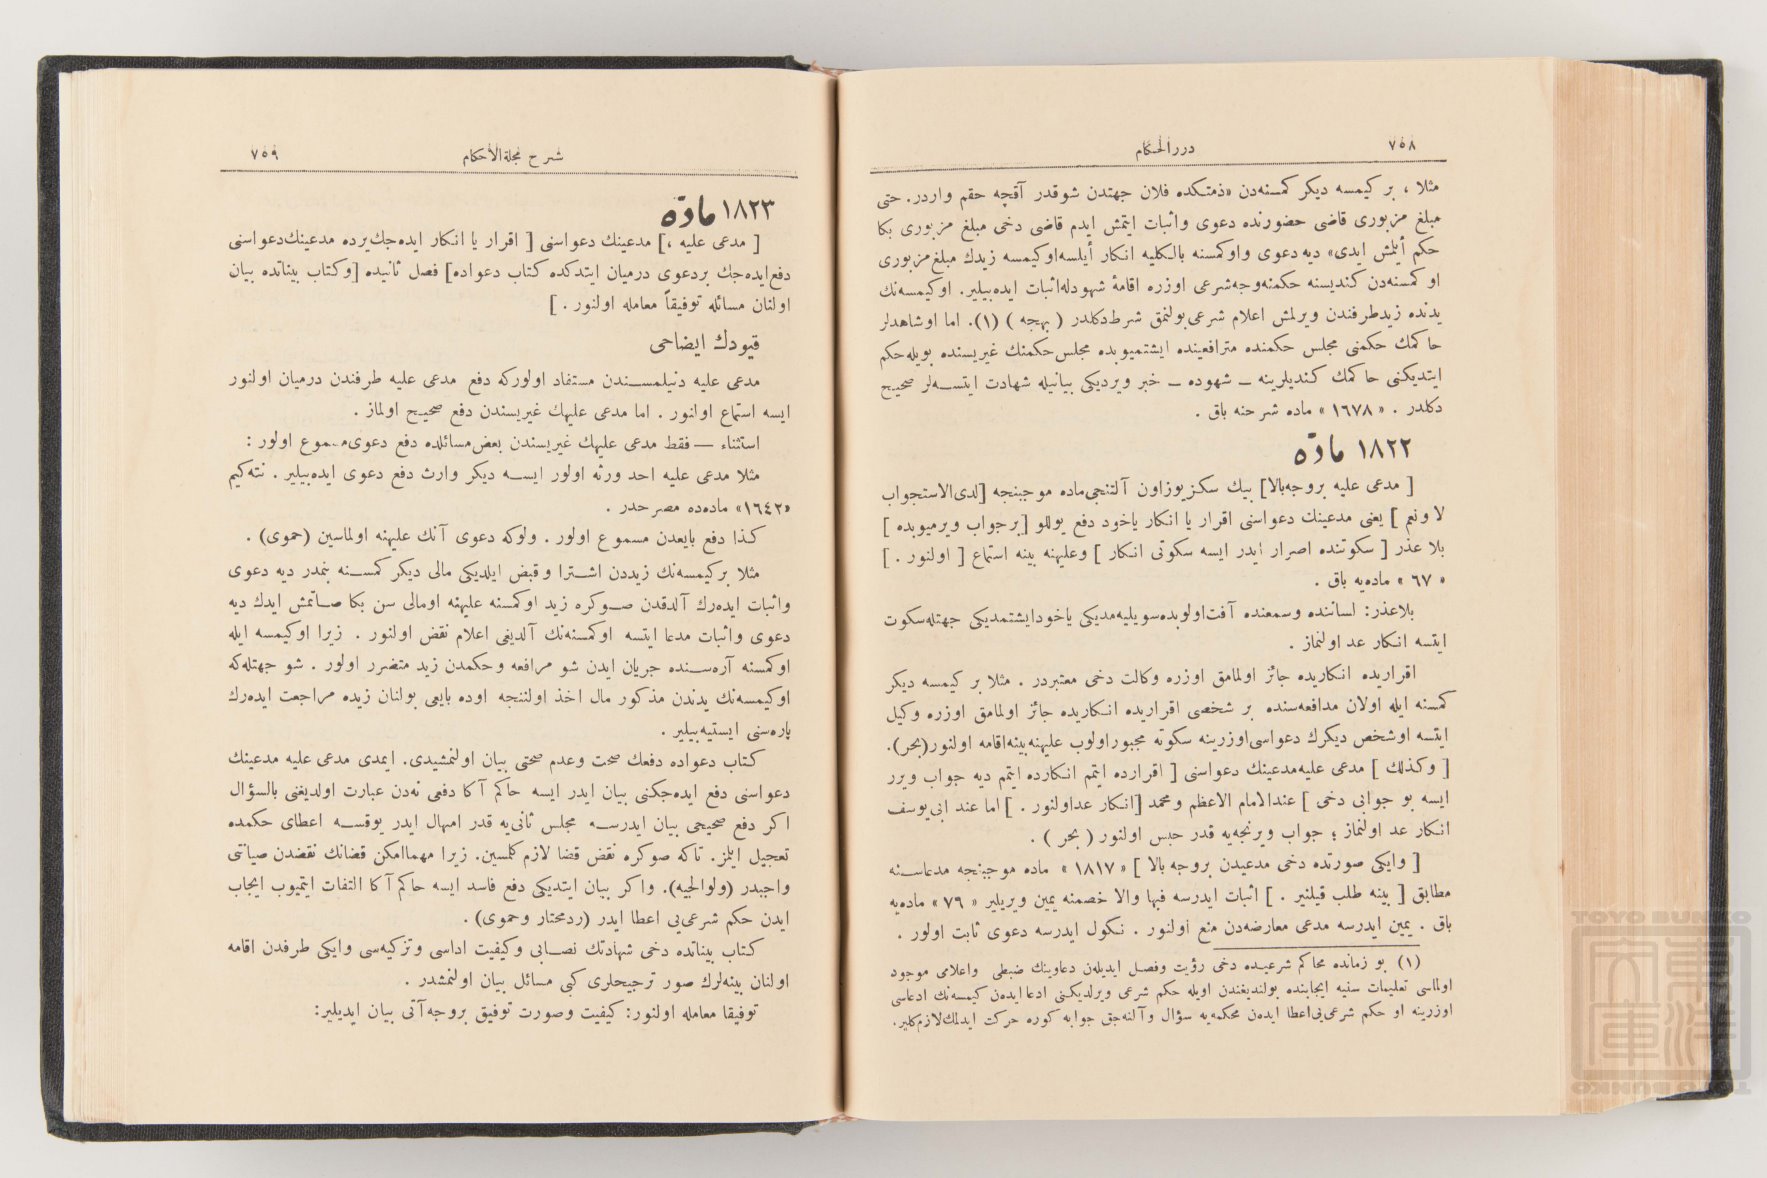 ٧٥٨
دررالحكام
مثلا ، بر كيمسه ديكر كمسنه‌دن «ذمتكده فلان جهتدن شوقدر آقچه حقم واردر. حتى
مبلغ مزبورى قاضى حضورنده دعوى واثبات ايتمش ايدم قاضى دخى مبلغ مزبورى بكا
حكم أيلمش ايدى» ديه دعوى واوكمسنه بالكليه انكار أيلسه‌اوكيمسه زيدك مبلغ‌مزبورى
او كمسنه‌دن كنديسنه حكمنه‌وجه‌شرعى اوزره اقامۀ شهودله‌اثبات ايده‌بيلير. اوكيمسه‌نك
يدنده زيدطرفندن ويرلمش اعلام شرعى‌بولنمق شرط‌دكلدر ( بهجه ) (١). اما اوشاهدلر
حاكمك حكمنى مجلس حكمنده مترافعينده ايشتميوبده مجلس‌حكمنك غيريسنده بويله‌حكم
ايتديكنى حاكمك كنديلرينه ــ شهوده ــ خبر ويرديكى بيانيله شهادت ايتسه‌لر صحيح
دكلدر . « ١٦٧٨ » ماده شرحنه باق .
١٨٢٢ مادّه
[ مدعى عليه بروجه‌بالا] بيك سكزيوزاون آلتنجى‌ماده موجبنجه [لدى‌الاستجواب
لا ونعم ] يعنى مدعينك دعواسنى اقرار يا انكار ياخود دفع يوللو [برجواب ويرميوبده ]
بلا عذر [ سكوتنده اصرار ايدر ايسه سكوتى انكار ] وعليهنه بينه استماع [ اولنور . ]
« ٦٧ » ماده‌يه باق .
بلاعذر: لساننده وسمعنده آفت‌اولوبده‌سويليه‌مديكى ياخودايشتمديكى جهتله‌سكوت
ايتسه انكار عد اولنماز .
اقراريده انكاريده جائز اولمامق اوزره وكالت دخى معتبردر . مثلا بر كيمسه ديكر
كمسنه ايله اولان مدافعه‌سنده بر شخصى اقراريده انكاريده جائز اولمامق اوزره وكيل
ايتسه اوشخص ديكرك دعواسى‌اوزرينه سكوته مجبوراولوب عليهنه‌بينه‌اقامه اولنور(بحر).
[ وكذلك ] مدعى عليه‌مدعينك دعواسنى [ اقرارده ايتمم انكارده ايتمم ديه جواب ويرر
ايسه بو جوابى دخى ] عندالامام الاعظم ومحمد [انكار عداولنور . ] اما عند ابى‌يوسف
انكار عد اولنماز ؛ جواب ويرنجه‌يه قدر حبس اولنور ( بحر ) .
[ وايكى صورتده دخى مدعيدن بروجه بالا ] « ١٨١٧ » ماده موجبنجه مدعاسنه
مطابق [ بينه طلب قيلنير . ] اثبات ايدرسه فبها والا خصمنه يمين ويريلير « ٧٩ » ماده‌يه
باق . يمين ايدرسه مدعى معارضه‌دن منع اولنور . نكول ايدرسه دعوى ثابت اولور .
(١) بو زمانده محاكم شرعيده دخى رؤيت وفصل ايديلن دعاوينك ضبطى واعلامى موجود
اولماسى تعليمات سنيه ايجابنده بولنديغندن اويله حكم شرعى ويرلديكنى ادعا ايدەن كيمسه‌نك ادعاسى
اوزرينه او حكم شرعى‌يى‌اعطا ايدەن محكمه‌يه سؤال وآلنه‌جق جوابه كوره حركت ايدلمك‌لازم‌كلير.
شرح مجلةالأحكام
٧٥٩
١٨٢٣ مادّه
[ مدعى عليه ،] مدعينك دعواسنى [ اقرار يا انكار ايده‌جك‌يرده مدعينك‌دعواسنى
دفع‌ايده‌جك بردعوى درميان ايتدكده كتاب دعواده] فصل ثانيده [وكتاب بيناتده بيان
اولنان مسائله توفيقاً معامله اولنور . ]
قيودك ايضاحى
مدعى عليه دنيلمسندن مستفاد اولوركه دفع مدعى عليه طرفندن درميان اولنور
ايسه استماع اولنور . اما مدعى عليهك غيريسندن دفع صحيح اولماز .
استثناء ــ فقط مدعى عليهك غيريسندن بعض‌مسائلده دفع دعوى‌مسموع اولور :
مثلا مدعى عليه احد ورثه اولور ايسه ديكر وارث دفع دعوى ايده‌بيلير . نته‌كيم
«١٦٤٢» ماده‌ده مصرحدر .
كذا دفع بايعدن مسموع اولور . ولوكه دعوى آنك عليهنه اولماسين (حموى) .
مثلا بركيمسه‌نك زيددن اشترا وقبض ايلديكى مالى ديكر كمسنه بنمدر ديه دعوى
واثبات ايده‌رك آلدقدن صوكره زيد اوكمسنه عليهنه اومالى سن بكا صاتمش ايدك ديه
دعوى واثبات مدعا ايتسه اوكمسنه‌نك آلديغى اعلام نقض اولنور . زيرا اوكيمسه ايله
اوكمسنه آره‌سنده جريان ايدن شو مرافعه وحكمدن زيد متضرر اولور . شو جهتله‌كه
اوكيمسه‌نك يدندن مذكور مال اخذ اولننجه اوده بايعى بولنان زيده مراجعت ايده‌رك
پاره‌سنى ايستيه‌بيلير .
كتاب دعواده دفعك صحت وعدم صحتى بيان اولنمشيدى. ايمدى مدعى عليه مدعينك
دعواسنى دفع ايده‌جكنى بيان ايدر ايسه حاكم آكا دفعى نه‌دن عبارت اولديغنى بالسؤال
اكر دفع صحيحى بيان ايدرسه مجلس ثانى‌يه قدر امهال ايدر يوقسه اعطاى حكمده
تعجيل ايلمز. تاكه صوكره نقض قضا لازم كلمسين. زيرا مهماامكن قضانك نقضدن صيانتى
واجبدر (ولوالجيه). واكر بيان ايتديكى دفع فاسد ايسه حاكم آكا التفات ايتميوب ايجاب
ايدن حكم شرعى‌يى اعطا ايدر (ردمحتار وحموى) .
كتاب بيناتده دخى شهادتك نصابى وكيفيت اداسى وتزكيه‌سى وايكى طرفدن اقامه
اولنان بينه‌لرك صور ترجيحلرى كبى مسائل بيان اولنمشدر .
توفيقا معامله اولنور: كيفيت وصورت توفيق بروجه‌آتى بيان ايديلير:
TOYO BUNKO
東洋
文庫
TOYO BUNKO